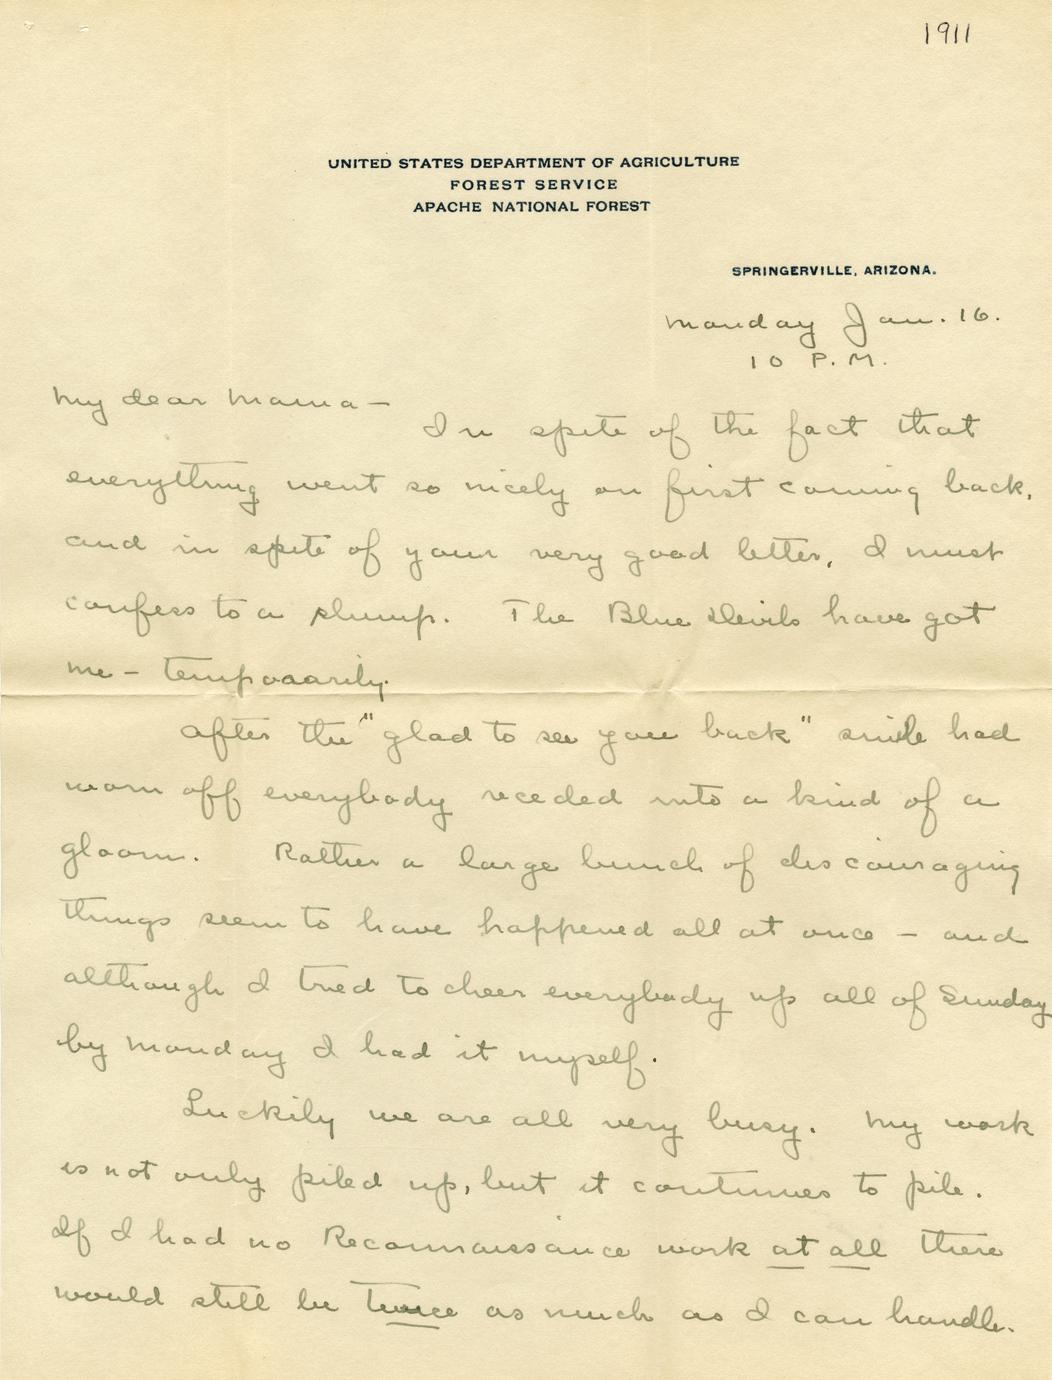 1911
UNITED STATES DEPARTMENT OF AGRICULTURE
FOREST SERVICE
APACHE NATIONAL FOREST
SPRINGERVILLE, ARIZONA.
Monday Jan. 16.
10 P.M.
My dear Mama —
In spite of the fact that
everything went so nicely on first coming back,
and in spite of your very good letter, I must
confess to a slump. The Blue Devils have got
me — temporarily.
After the "glad to see you back" smile had
worn off everybody receded into a kind of a
gloom. Rather a large bunch of discouraging
things seem to have happened all at once — and
although I tried to cheer everybody up all of Sunday
by Monday I had it myself.
Luckily we are all very busy. My work
is not only piled up, but it continues to pile.
If I had no Reconnaissance work at all there
would still be twice as much as I can handle.